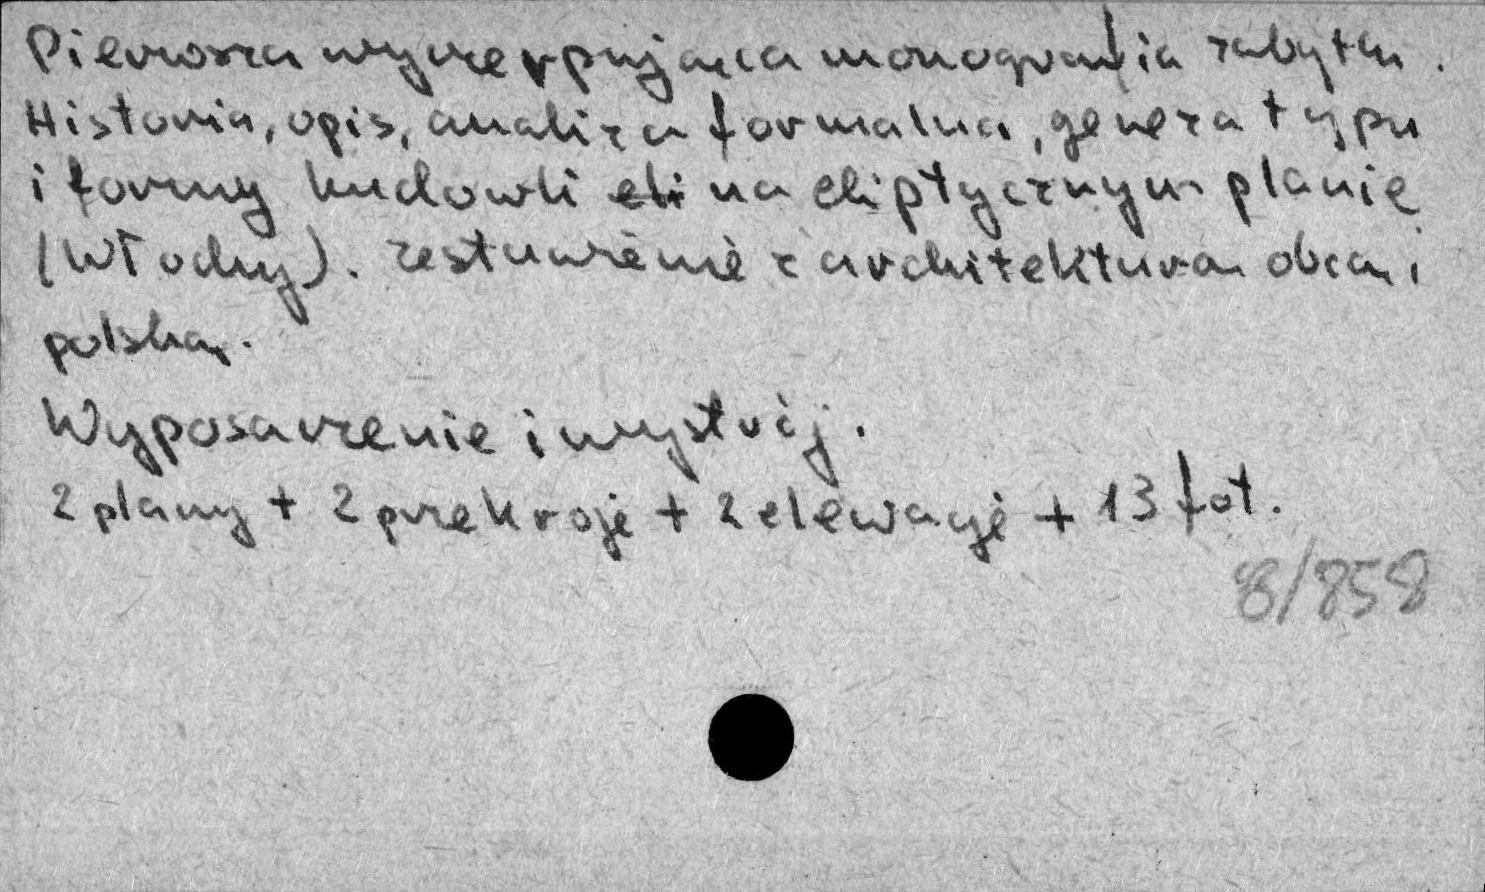 Pierwsza wyczerpująca monografia zabytku.
Historia, opis, analiza formalna, geneza typu
i formy budowli eli na eliptycznym planie
(Włochy). Zestawienie z architekturą obcą i
polską.
Wyposażenie i wystrój.
2 plany + 2 przekroje + 2 elewacje + 13 fot.
8/858